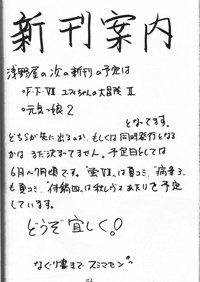 新刊案内
浅野屋の次の新刊の予定は
・F.F.VII ユフィちゃんの大冒険 II
・元気っ娘 2
となってます。
どちらが先に出るのか、もしくは同時発行となる
かはまだ決まってません。予定日としては
6月〜7月頃です。
も夏コミ、
は秋レヴォあたりで予定
しています。
どうぞ宜しく。
なぐり書きでスミマセン。